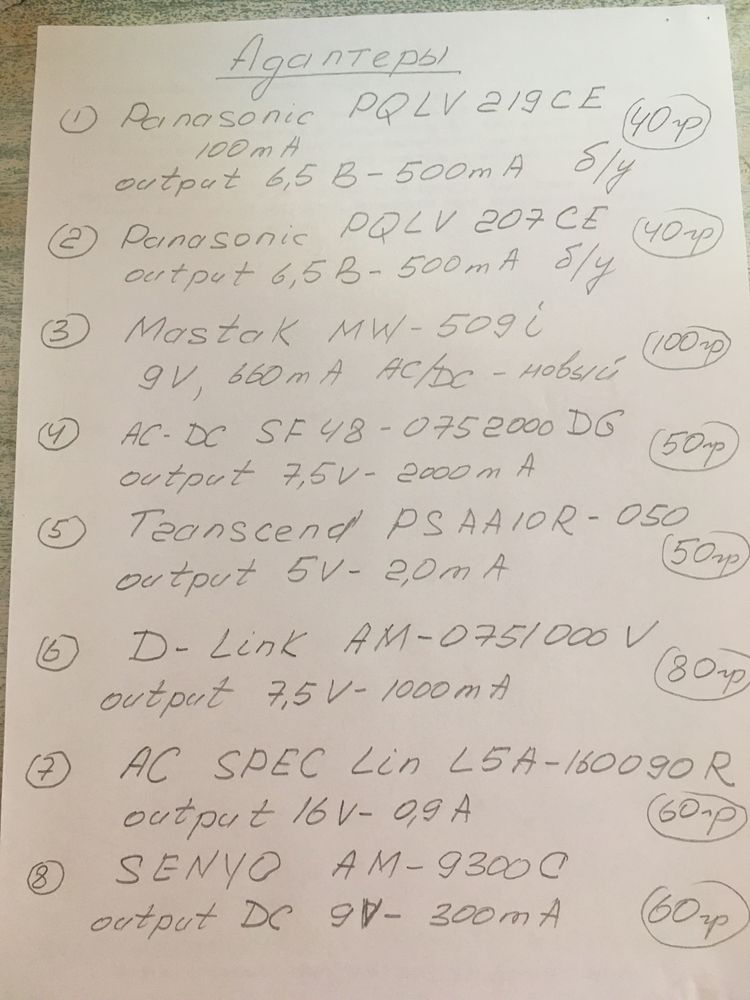 Адаптеры
① Panasonic PQLV 219CE 40гр
100mA
output 6,5 В - 500mA б/у
② Panasonic PQLV 207CE 40гр
output 6,5 В - 500mA б/у
③ Mastak MW-509i 100гр
9V, 660mA AC/DC - новый
④ AC-DC SF48-0752000DG 50гр
output 7,5V - 2000mA
⑤ Transcend PSAA10R-050 50гр
output 5V - 2,0mA
⑥ D-Link AM-0751000V 80гр
output 7,5V - 1000mA
⑦ AC SPEC Lin L5A-160090R
output 16V - 0,9A 60гр
⑧ SENYO AM-9300C
output DC 9V - 300mA 60гр